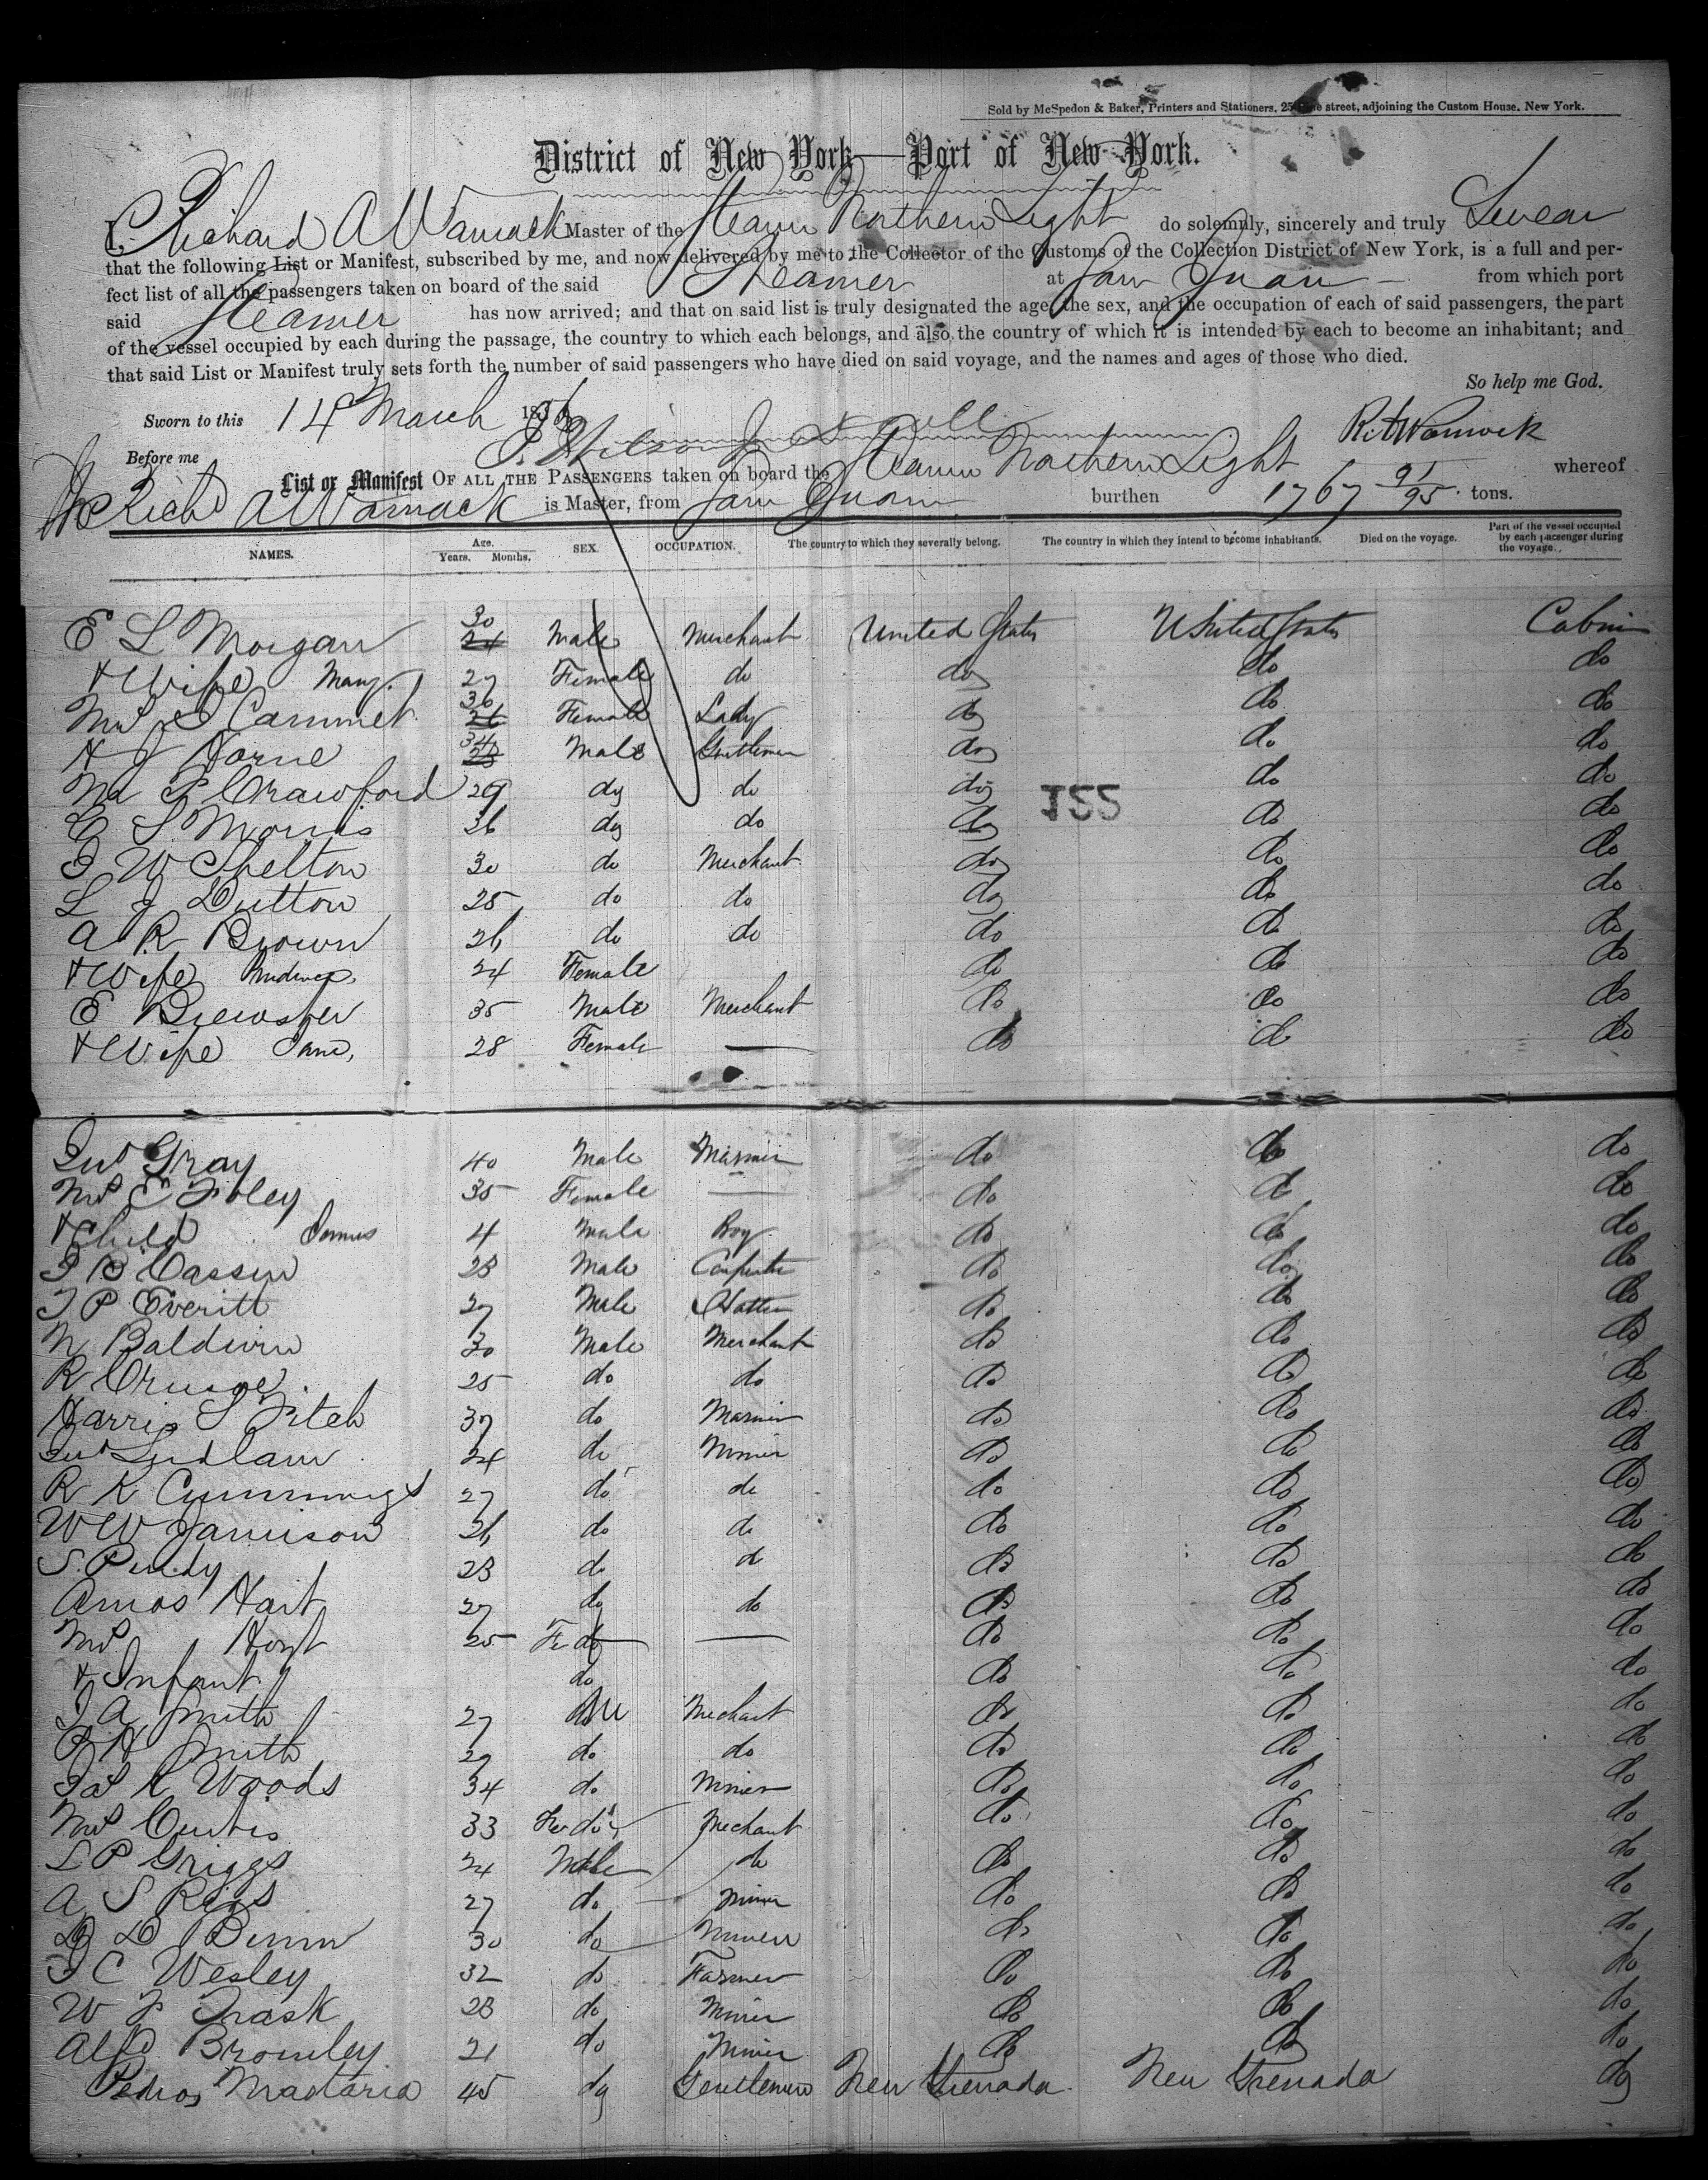 Sold by McSpedon & Baker, Printers and Stationers, 25 street, adjoining the Custom House, New York.
District of New York—Port of New York.
I, Richard A Wamack Master of the Steam Northern Light do solemnly, sincerely and truly Swear
that the following List or Manifest, subscribed by me, and now delivered by me to the Collector of the Customs of the Collection District of New York, is a full and per-
fect list of all the passengers taken on board of the said Steamer at San Juan from which port
said Steamer has now arrived; and that on said list is truly designated the age, the sex, and the occupation of each of said passengers, the part
of the vessel occupied by each during the passage, the country to which each belongs, and also the country of which it is intended by each to become an inhabitant; and
that said List or Manifest truly sets forth the number of said passengers who have died on said voyage, and the names and ages of those who died.
So help me God.
Sworn to this 14 March 1856
Before me
List or Manifest OF ALL THE PASSENGERS taken on board the Steam Northern Light whereof
Richd A Wamack is Master, from San Juan burthen 1767 91/95 tons.
NAMES. Age. Years. Months. SEX. OCCUPATION. The country to which they severally belong. The country in which they intend to become inhabitants. Died on the voyage. Part of the vessel occupied by each passenger during the voyage.
E L Morgan 30 24 Male Merchant United States United States Cabin
+ Wife Mary. 27 Female do do do do
Mrs Cammet 36 26 Female Lady do do do
H J Horne 34 Male Gentleman do do do
P Crawford 29 do do do do do
S Morris 36 do do do do do
J W Shelton 30 do Merchant do do do
L J Dutton 25 do do do do do
A R Brown 26 do do do do do
+ Wife 24 Female do do do
E Brewster 35 Male Merchant do do do
+ Wife Jane, 28 Female — do do do
122
Jno Gray 40 Male Mariner do do do
Mrs E Foley 35 Female — do do do
+ Child James 4 Male Boy do do do
J B Cassin 28 Male Carpenter do do do
J P Everitt 27 Male Hatter do do do
N Baldwin 30 Male Merchant do do do
R 25 do do do do do
Harris S Fitch 37 do Mariner do do do
Jno Ludlam 24 do Miner do do do
R K Cummings 27 do do do do do
W W Jamison 26 do do do do do
S. Purdy 28 do do do do do
Amos Hart 27 do do do do do
Mrs Hart 25 Fe do — do do do
+ Infant do do do do
J A Smith 27 M Mechant do do do
P H Smith 29 do do do do do
Jas K Woods 34 do Miner do do do
Mrs Curtis 33 Fe do Mechant do do do
L P Griggs 24 Male do do do do
A S 27 do Miner do do do
D D 30 do Miner do do do
J C Wesley 32 do Farmer do do do
W F Trask 28 do Miner do do do
Alfd Bromley 21 do Miner do do do
Pedros 45 do Gentlemen New Grenada New Grenada do